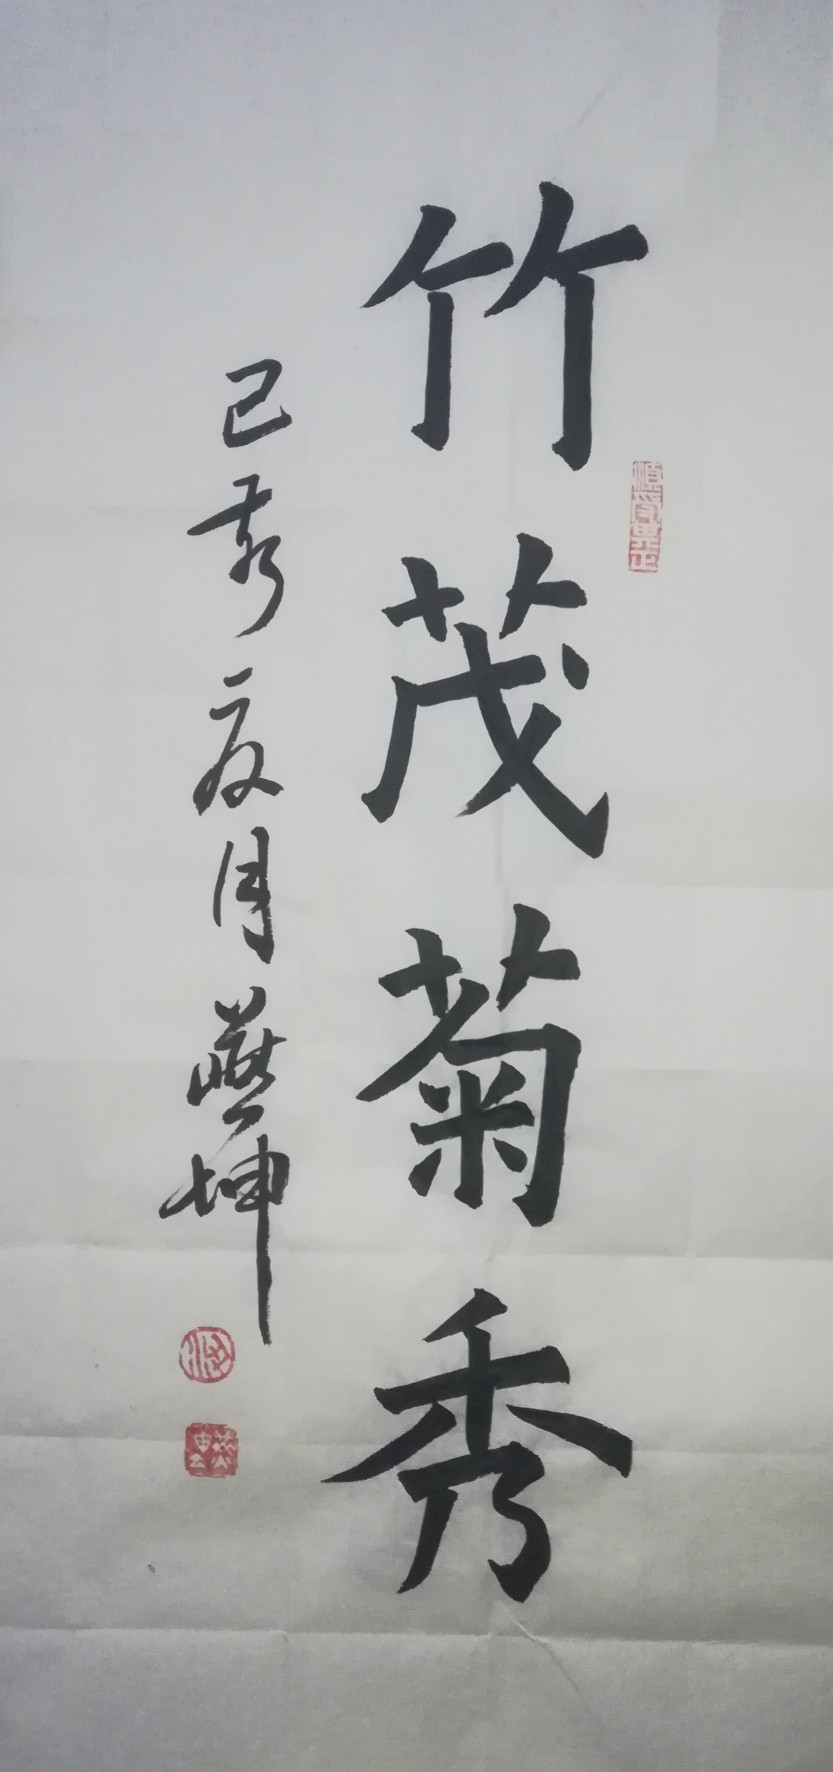 竹茂菊秀
己亥夏月燕坤